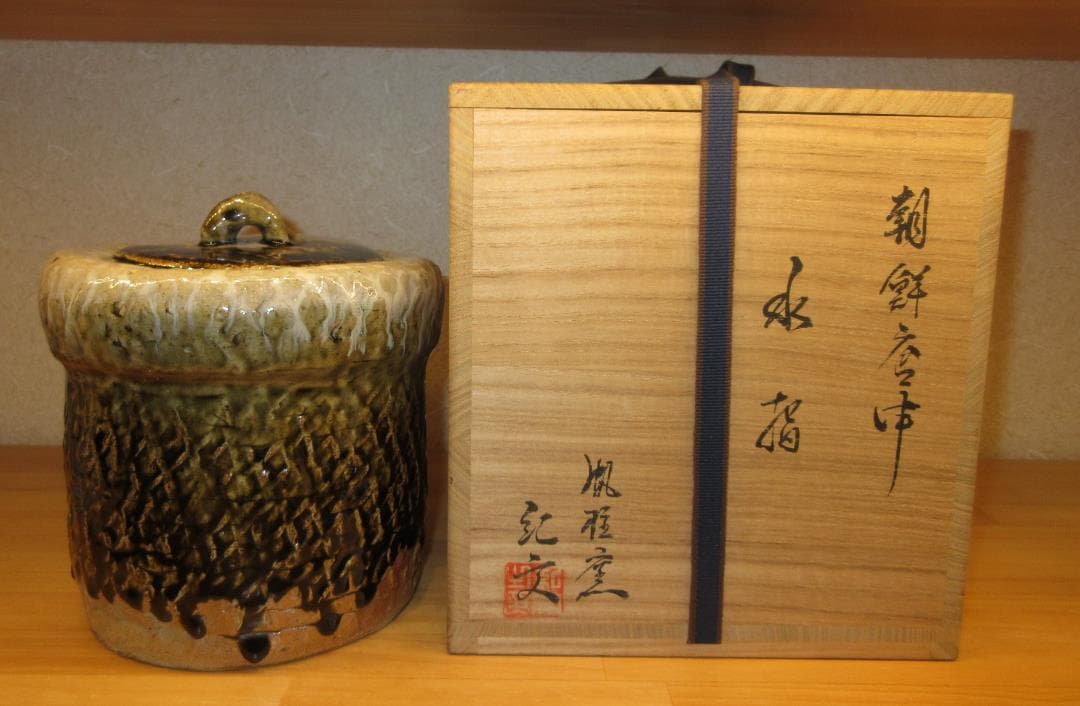 朝鮮唐津
水指
凧桂窯
紀文